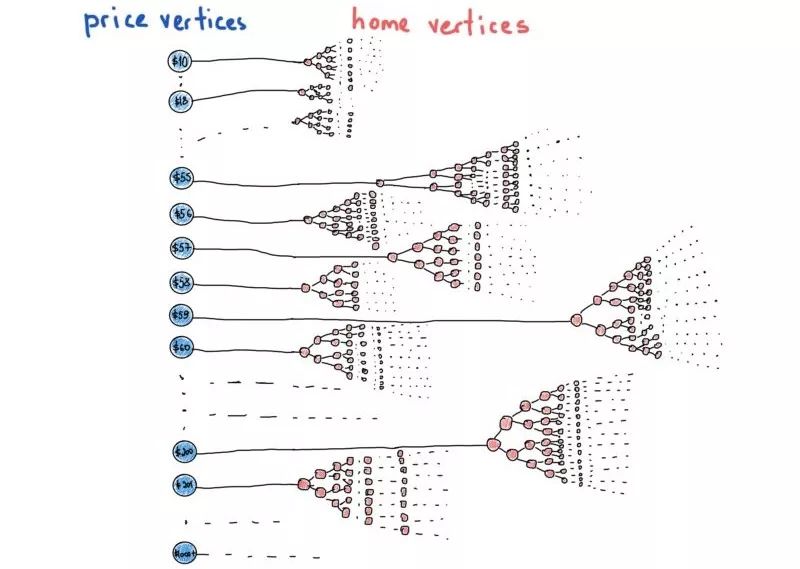 price vertices home vertices
$10
$18
$55
$56
$57
$58
$59
$60
$200
$201